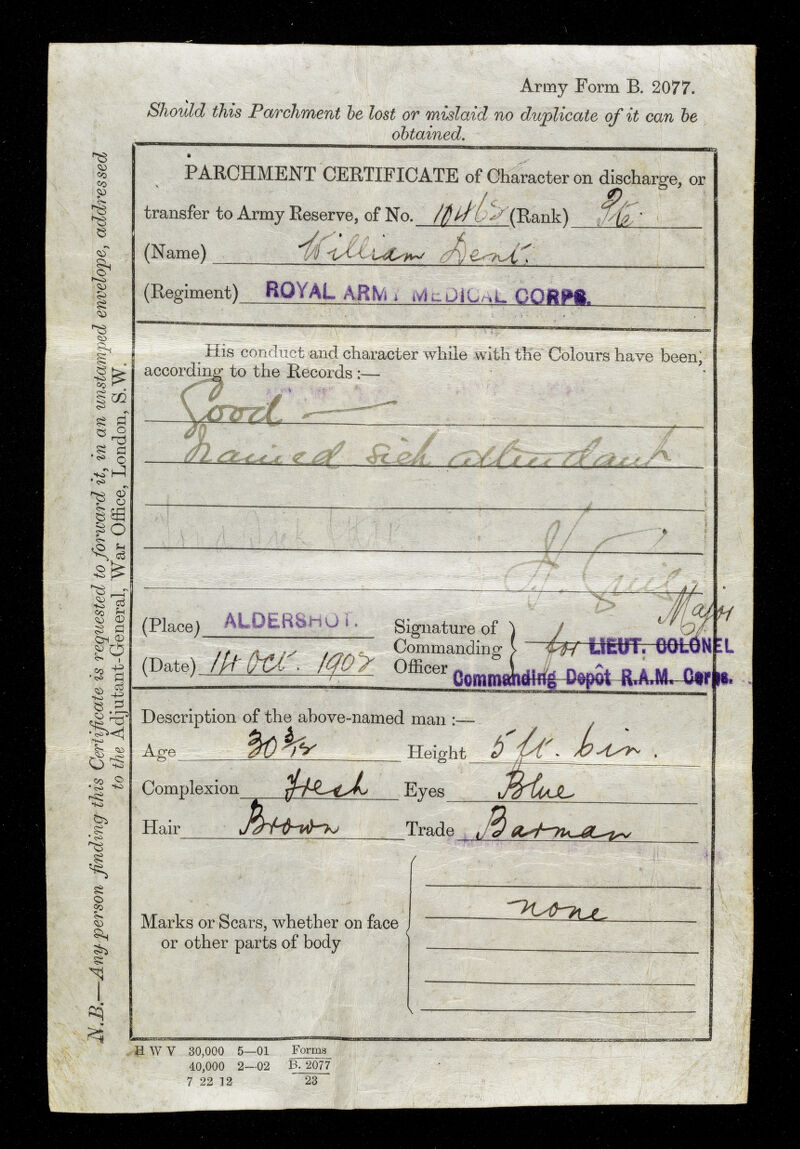 Army Form B. 2077.
Should this Parchment be lost or mislaid no duplicate of it can be
obtained.
PARCHMENT CERTIFICATE of Character on discharge, or
transfer to Army Reserve, of No. 10462 (Rank) Pte.
(Name) William Dent.
(Regiment) ROYAL ARMY MEDICAL CORPS.
His conduct and character while with the Colours have been,
according to the Records :—
Good —
Trained sick attendant
H.
Major
(Place) ALDERSHOT.
Signature of
Commanding
Officer
for LIEUT. COLONEL
Commanding Depôt R.A.M. Corps.
(Date) 14 Oct. 1902
Description of the above-named man :—
Age 30 3/12 Height 5 ft. 6 in.
Complexion Fresh Eyes Blue
Hair Brown Trade Barman
Marks or Scars, whether on face
or other parts of body
none
H W V 30,000 5—01 Forms
40,000 2—02 B. 2077
7 22 12 23
N.B.—Any person finding this Certificate is requested to forward it, in an unstamped envelope, addressed
to the Adjutant-General, War Office, London, S.W.